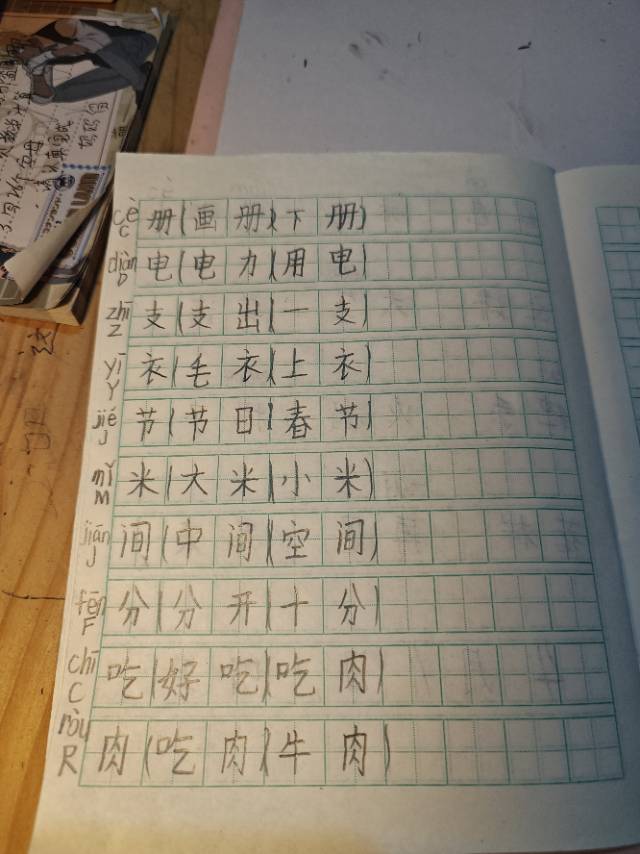 cè 册(画册)(下册)
C
diàn 电(电力)(用电)
D
zhī 支(支出)(一支)
Z
yī 衣(毛衣)(上衣)
Y
jié 节(节日)(春节)
J
mǐ 米(大米)(小米)
M
jiān 间(中间)(空间)
J
fēn 分(分开)(十分)
F
chī 吃(好吃)(吃肉)
C
ròu 肉(吃肉)(牛肉)
R